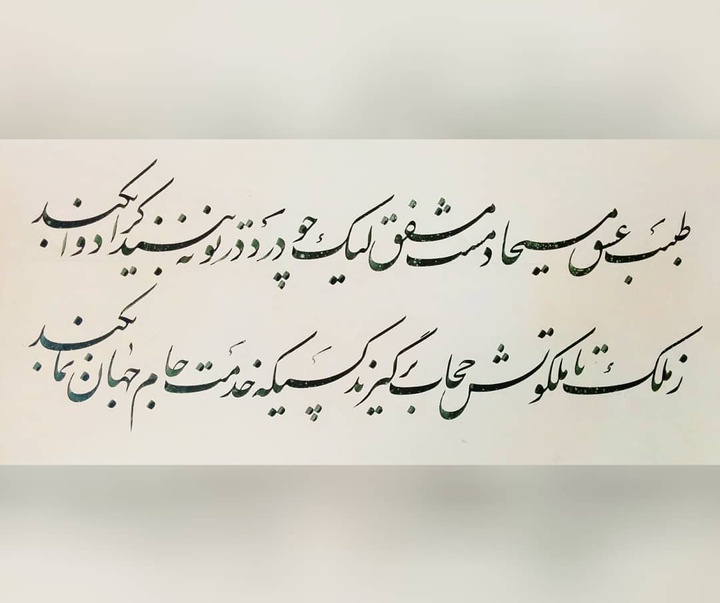 طبیب عشق مسیحا دمست مشفق لیک چو درد در تو نه بیند کرا دوا بکند
ز ملک تا ملکوتش حجاب برگیرند کسیکه خدمت جام جهان نما بکند